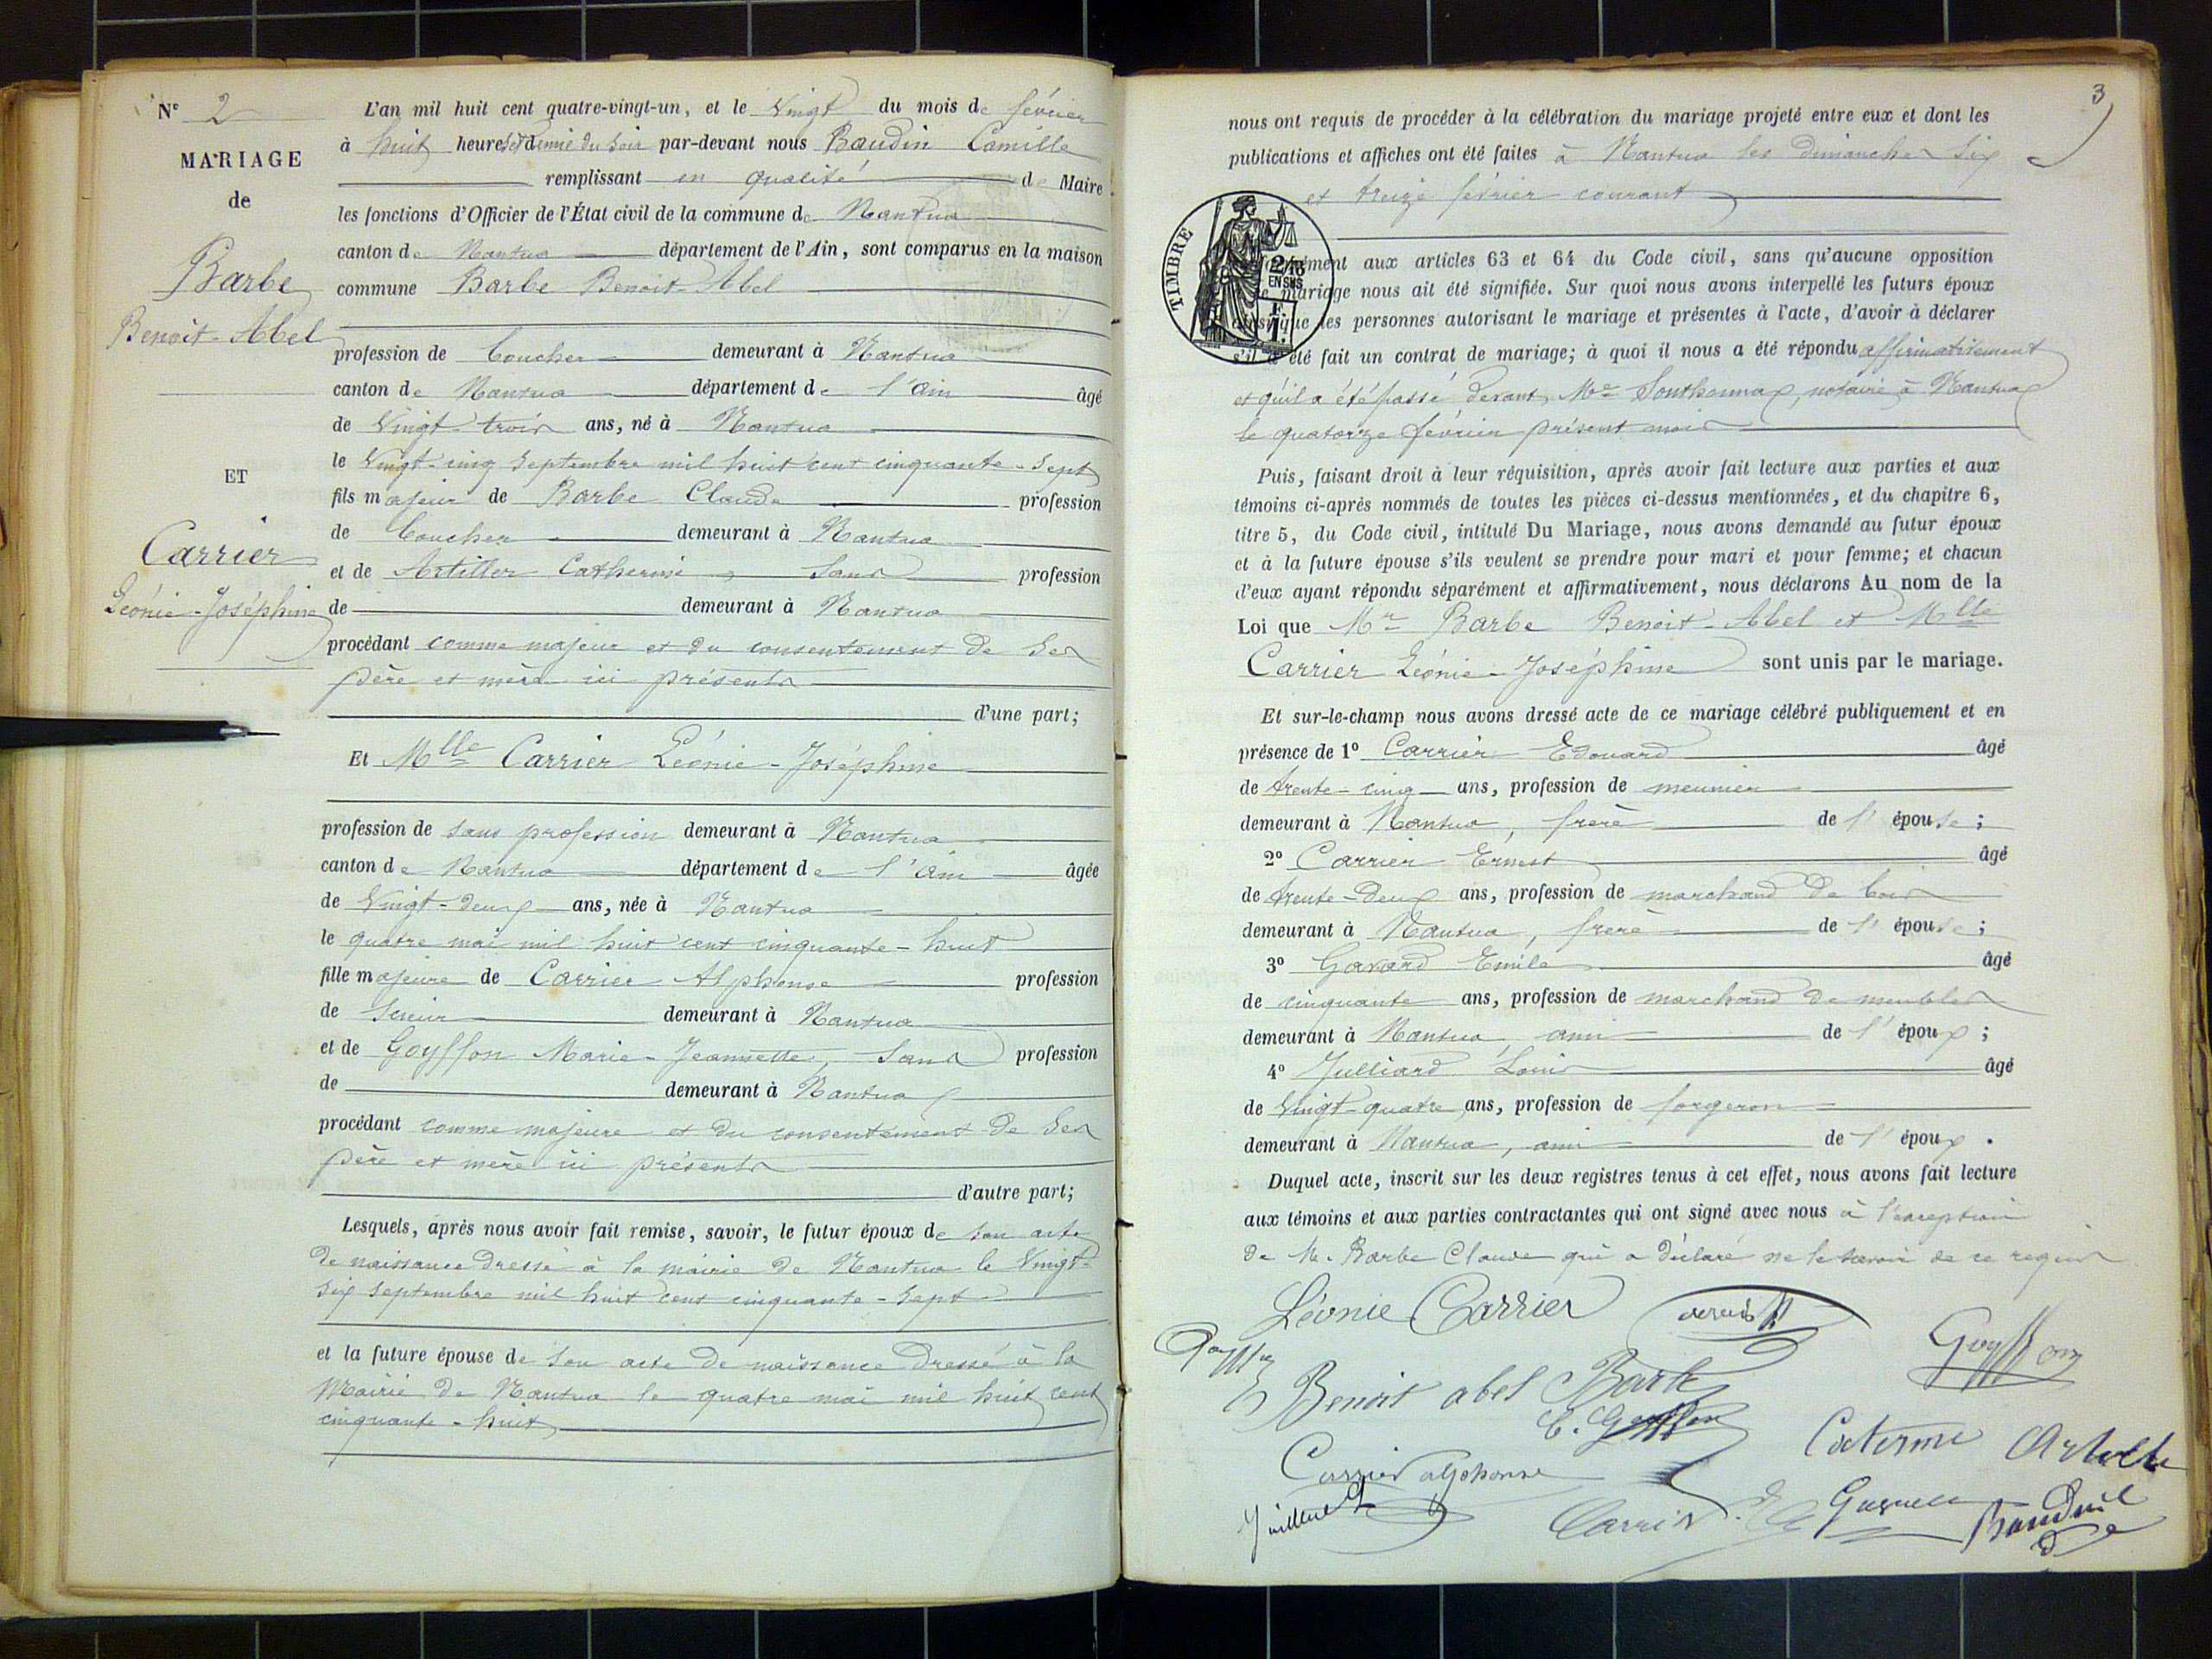 N° 2
MARIAGE
de
Barbe
Benoit-Abel
ET
Carrier
Léonie-Joséphine
L'an mil huit cent quatre-vingt-un, et le Vingt du mois de février
à huit heures et demie du soir par-devant nous Baudin Camille
remplissant en qualité de Maire
les fonctions d'Officier de l'État civil de la commune de Nantua
canton de Nantua département de l'Ain, sont comparus en la maison
commune Barbe Benoit-Abel
profession de boucher demeurant à Nantua
canton de Nantua département de l'ain âgé
de Vingt-trois ans, né à Nantua
le Vingt-cinq Septembre mil huit cent cinquante-sept
fils majeur de Barbe Claude profession
de boucher demeurant à Nantua
et de Artiller Catherine, sans profession
de demeurant à Nantua
procédant comme majeur et du consentement de ses
père et mère ici présents
d'une part;
Et Mlle Carrier Léonie-Joséphine
profession de sans profession demeurant à Nantua
canton de Nantua département de l'ain âgée
de Vingt-deux ans, née à Nantua
le quatre mai mil huit cent cinquante-huit
fille majeure de Carrier Alphonse profession
de scieur demeurant à Nantua
et de Goyffon Marie-Jeannette, sans profession
de demeurant à Nantua
procédant comme majeure et du consentement de ses
père et mère ici présents
d'autre part;
Lesquels, après nous avoir fait remise, savoir, le futur époux de son acte
de naissance dressé à la mairie de Nantua le Vingt-
six septembre mil huit cent cinquante-sept
et la future épouse de son acte de naissance dressé à la
Mairie de Nantua le quatre mai mil huit cent
cinquante-huit
3
nous ont requis de procéder à la célébration du mariage projeté entre eux et dont les
publications et affiches ont été faites à Nantua les dimanches six
et treize février courant
TIMBRE
2/10
EN SUS
1 F.
aux articles 63 et 64 du Code civil, sans qu'aucune opposition
mariage nous ait été signifiée. Sur quoi nous avons interpellé les futurs époux
ainsi que les personnes autorisant le mariage et présentes à l'acte, d'avoir à déclarer
s'il a été fait un contrat de mariage; à quoi il nous a été répondu affirmativement
et qu'il a été passé devant Me Southonnax, notaire à Nantua
le quatorze février présent mois
Puis, faisant droit à leur réquisition, après avoir fait lecture aux parties et aux
témoins ci-après nommés de toutes les pièces ci-dessus mentionnées, et du chapitre 6,
titre 5, du Code civil, intitulé Du Mariage, nous avons demandé au futur époux
et à la future épouse s'ils veulent se prendre pour mari et pour femme; et chacun
d'eux ayant répondu séparément et affirmativement, nous déclarons Au nom de la
Loi que Mr Barbe Benoit-Abel et Mlle
Carrier Léonie-Joséphine sont unis par le mariage.
Et sur-le-champ nous avons dressé acte de ce mariage célébré publiquement et en
présence de 1° Carrier Edouard âgé
de trente-cinq ans, profession de meunier
demeurant à Nantua, frère de l'épouse;
2° Carrier Ernest âgé
de trente-deux ans, profession de marchand de bois
demeurant à Nantua, frère de l'épouse;
3° Gavard Emile âgé
de cinquante ans, profession de marchand de meubles
demeurant à Nantua, ami de l'époux;
4° Julliard Louis âgé
de Vingt-quatre ans, profession de forgeron
demeurant à Nantua, ami de l'époux.
Duquel acte, inscrit sur les deux registres tenus à cet effet, nous avons fait lecture
aux témoins et aux parties contractantes qui ont signé avec nous à l'exception
de M. Barbe Claude qui a déclaré ne le savoir de ce requis
Léonie Carrier
Goyffon
Benoit abel Barbe
Carrier alphonse
Carrier